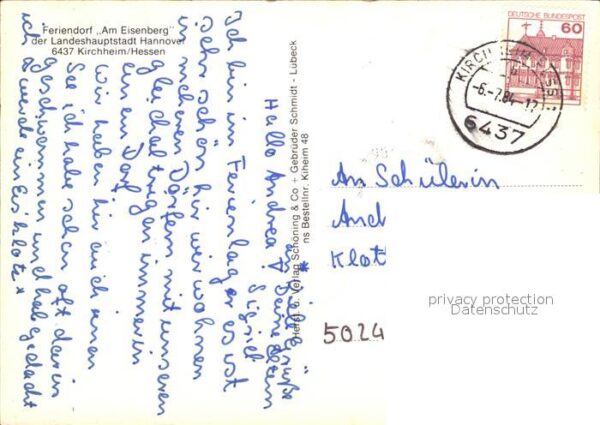 Feriendorf „Am Eisenberg"
der Landeshauptstadt Hannover
6437 Kirchheim/Hessen
Hallo Andrea!
Ich bin im Ferienlager es ist
sehr schön hir wir wohnen
in mehreren Dörfern mit unseren
gleichaltrigen immer in
einen Dorf.
Wir haben hir auch einen
See ich habe schon oft darin
geschwommen und hab gedacht
ich werde ein Eisklotz*
* Viele grüße
Deine Eltern
Sigrid
Herst. u. Verlag Schöning & Co + Gebrüder Schmidt - Lübeck
ns Bestellnr. Kiheim 48
DEUTSCHE BUNDESPOST
60
KIRCHHEIM, HESS
-6.-7.84-17
6437
An Schülerin
And
Klot
privacy protection
Datenschutz
5024